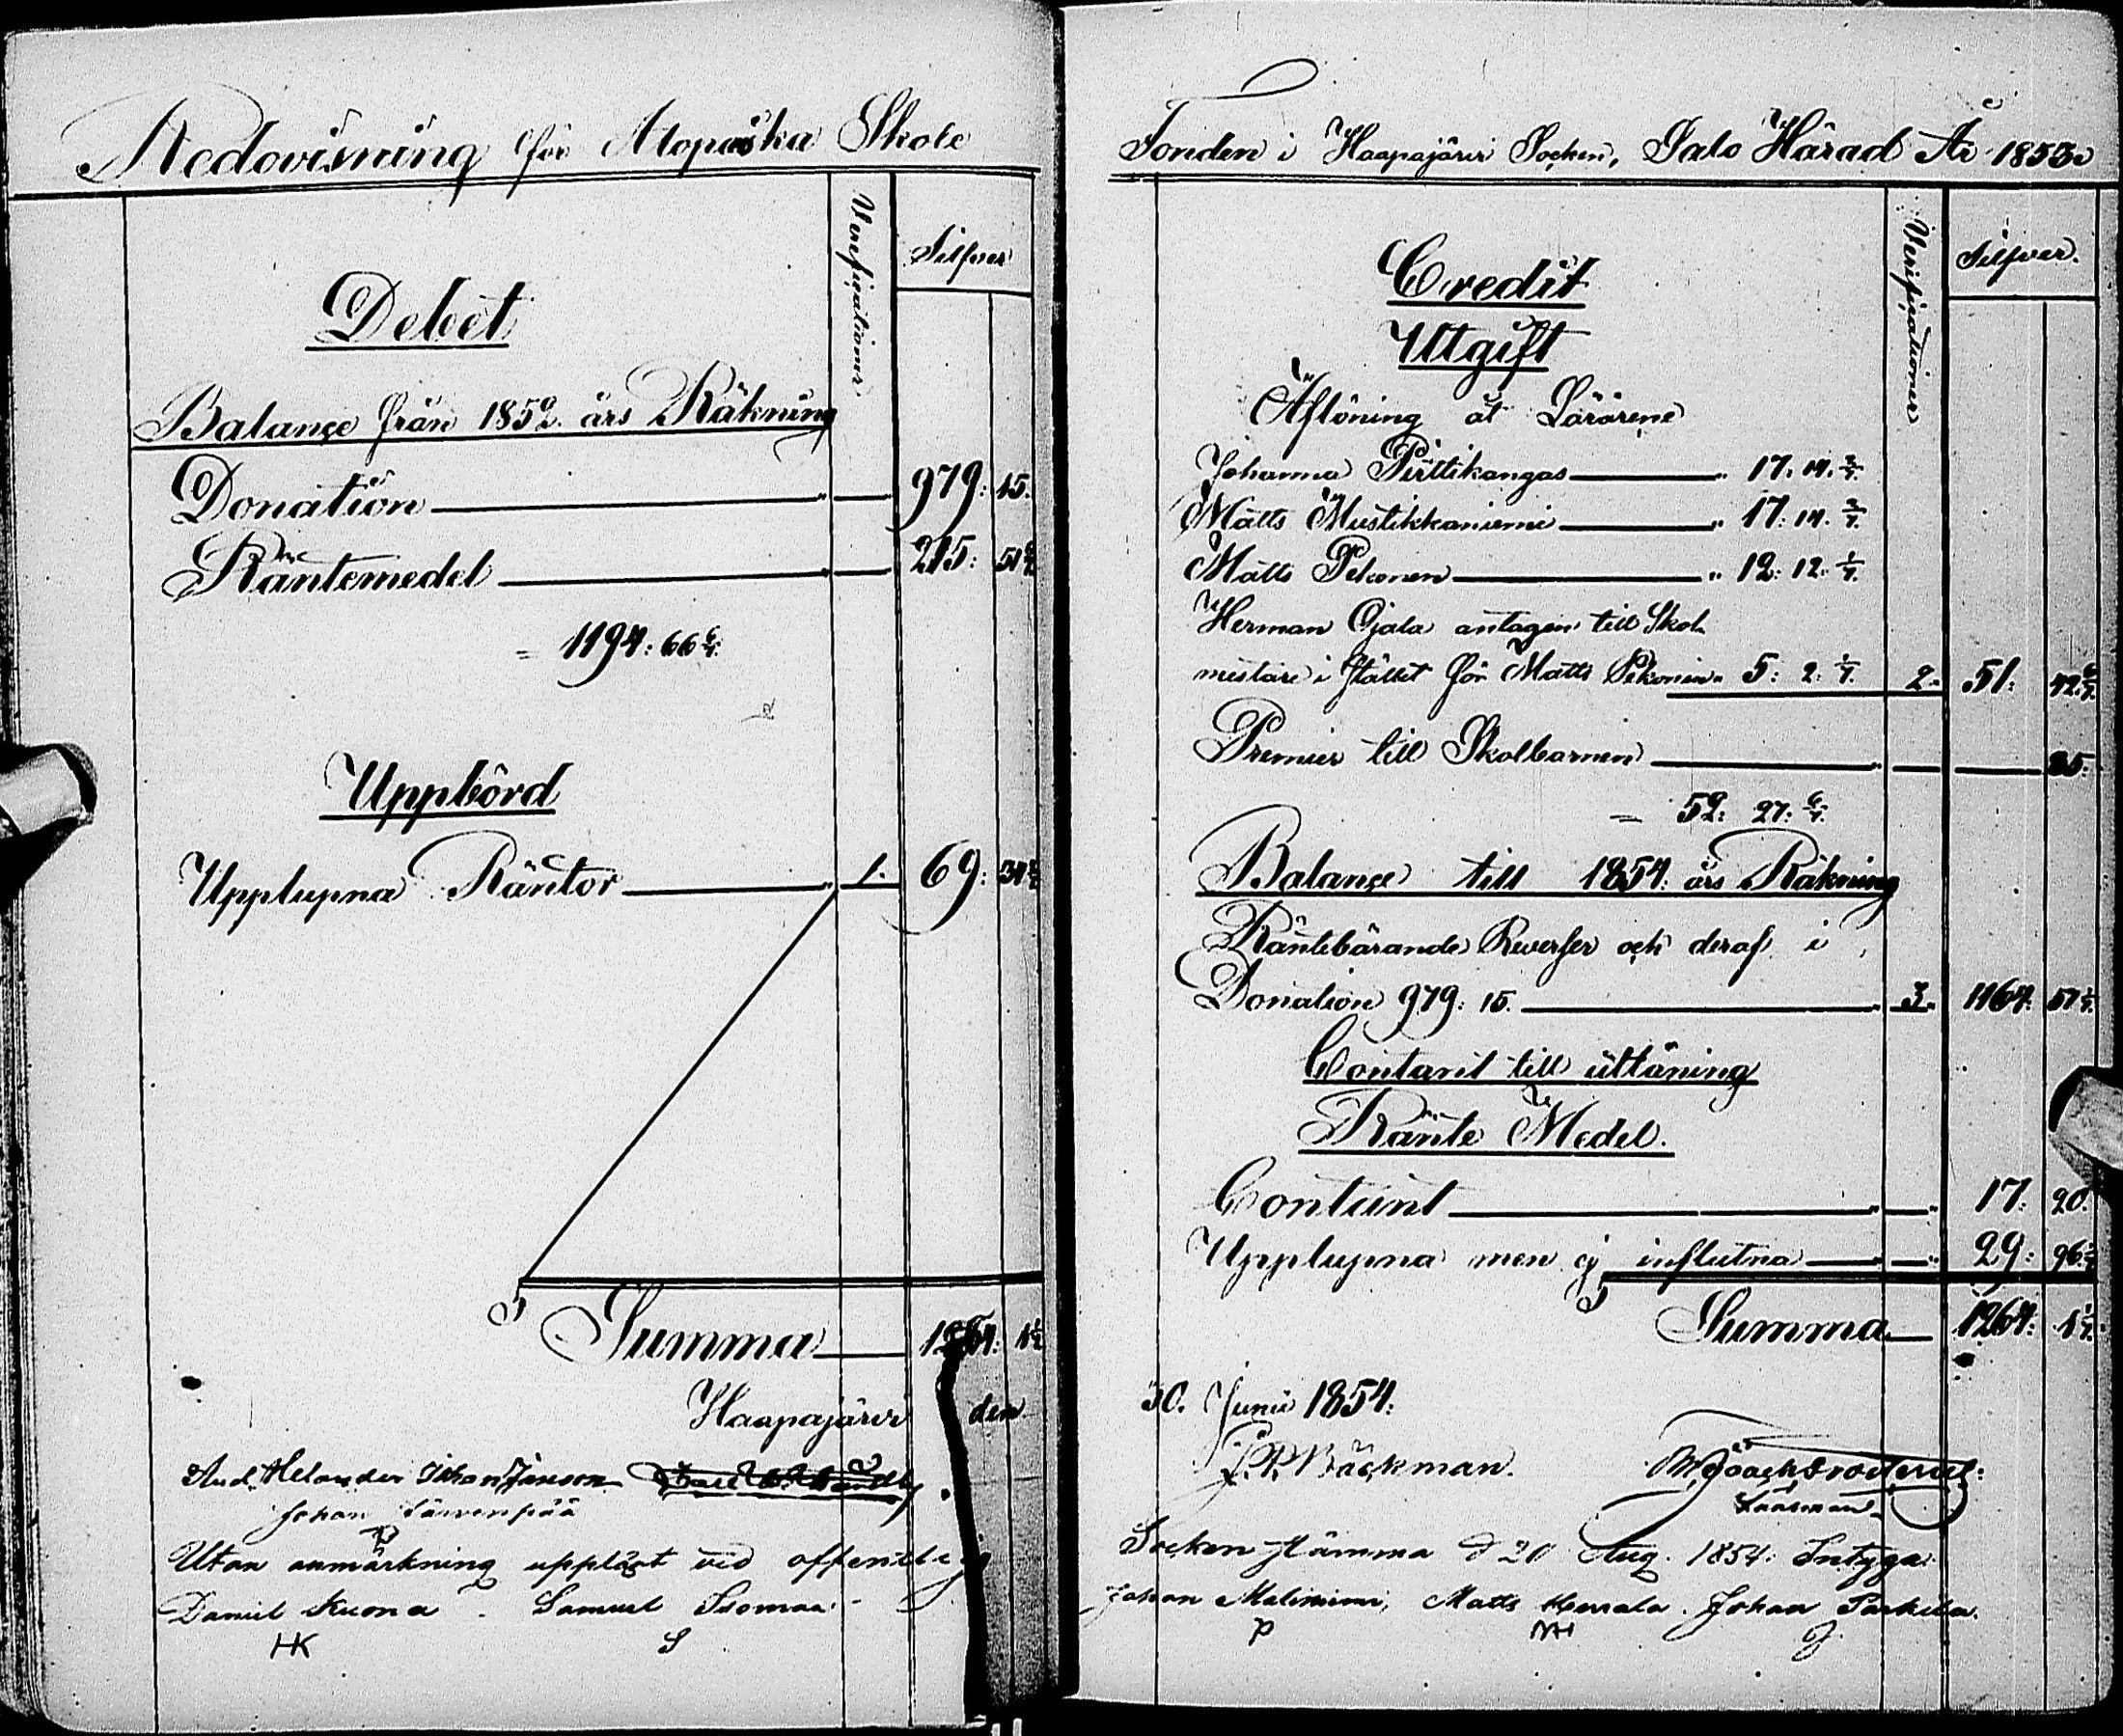 Redovisning för Alopæiska Skole
Verificationer
Silfver
Debet
Balançe från 1852 års Räkning
Donation 979: 15.
Räntemedel 215: 51 6/7
= 1194: 66 6/7.
Uppbörd
Upplupna Räntor 1. 69: 34 2/7
Summa 1264: 1 1/7
Haapajärvi den
And. Helander Johan Janson
Johan Järvenpää
Utan anmärkning uppläst vid offentlig
Daniel Kuona - Samuel Suomaa -
HK S
Fonden i Haapajärvi Socken, Salo Härad År 1853
Verificationer
Silfver.
Credit
Utgift
Aflöning åt Lärärene
Johanna Pirttikangas 17. 14. 2/7.
Matts Mustikkaniemi 17: 14. 2/7.
Matts Pekonen 12: 12. 1/7.
Herman Ojala antagen till Skol
mästare i stället för Matts Pekonen 5: 2: 1/7. 2. 51: 42 6/7.
Premier till Skolbarnen 85.
= 52: 27: 6/7.
Balançe till 1854 års Räkning
Räntebärande Reverser och deraf i
Donation 979: 15. 3. 1164: 57 1/7.
Contant till utlåning
Ränte Medel.
Contant 17: 20.
Upplupna men ej influtna 29: 96 1/7
Summa 1264: 1 1/7.
30. Junii 1854.
J. P. Bäckman.
Länsman
Socken Stämma d 20 Aug. 1854. Intyga
Johan Maliniemi, Matts Herrala. Johan Parkila.
P MH J